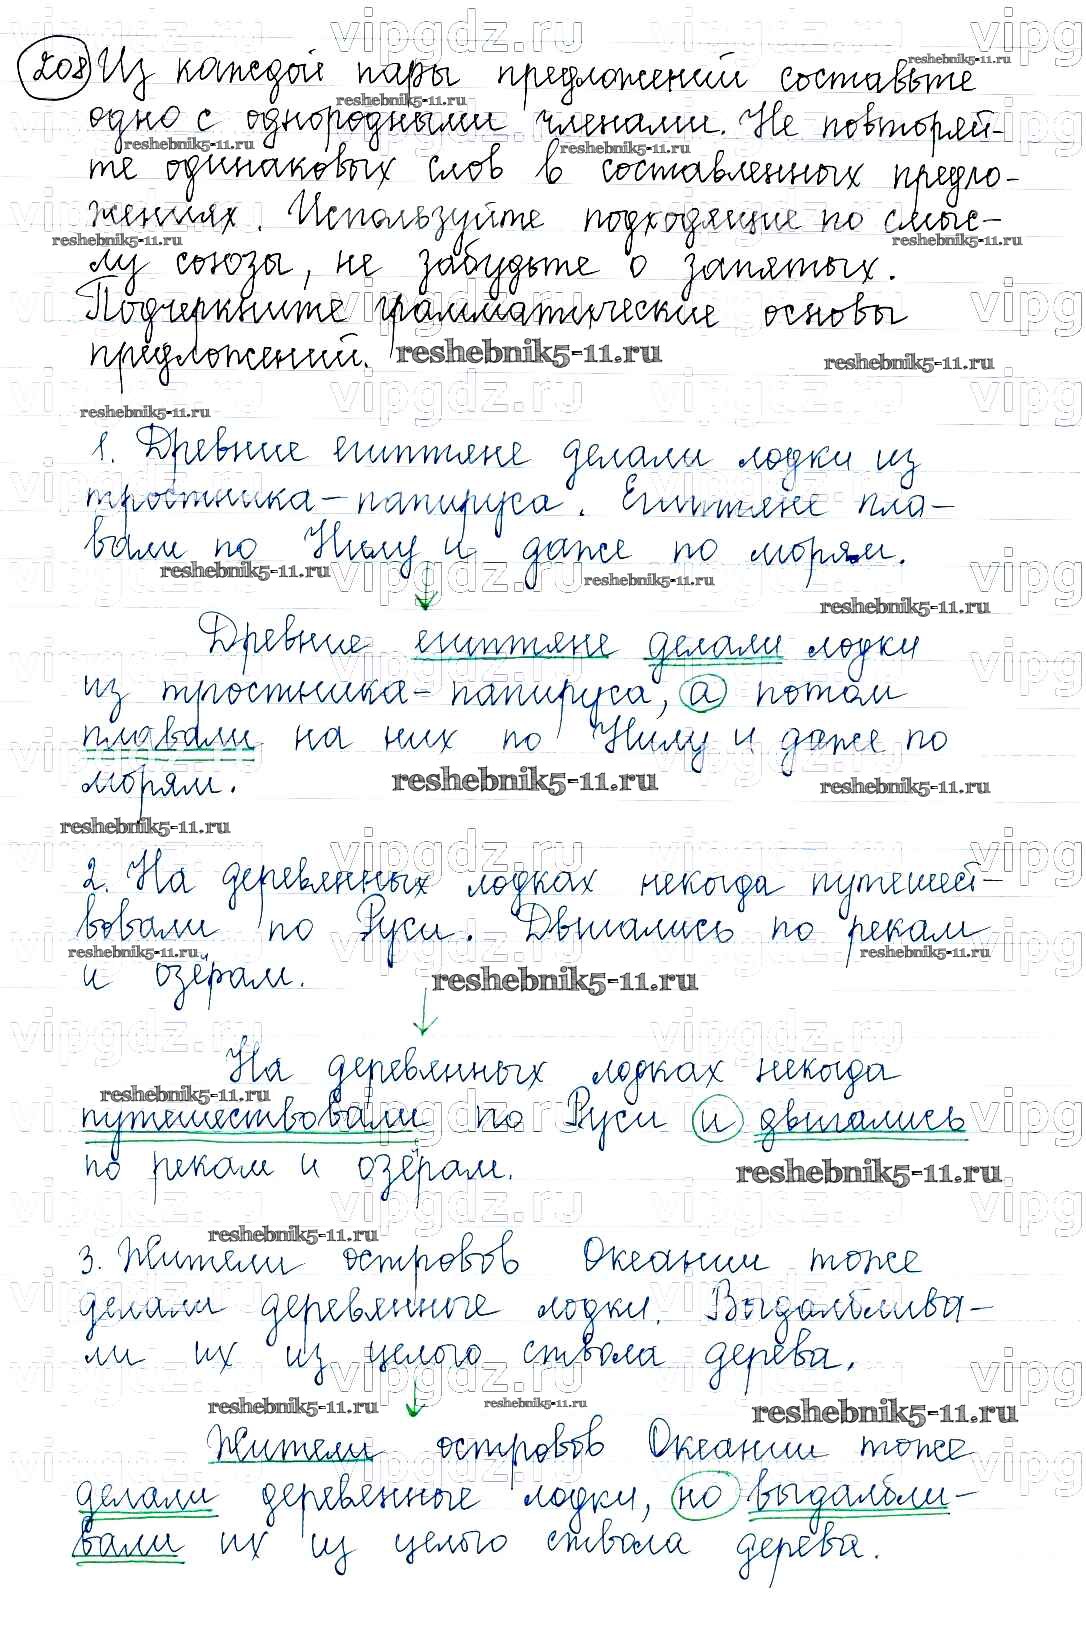 208 Из каждой пары предложений составьте
одно с однородными членами. Не повторяй-
те одинаковых слов в составленных предло-
жениях. Используйте подходящие по смыс-
лу союзы, не забудьте о запятых.
Подчеркните грамматические основы
предложений.
1. Древние египтяне делали лодки из
тростника-папируса. Египтяне пла-
вали по Нилу и даже по морям.
Древние египтяне делали лодки
из тростника-папируса, а потом
плавали на них по Нилу и даже по
морям.
2. На деревянных лодках некогда путешест-
вовали по Руси. Двигались по рекам
и озёрам.
На деревянных лодках некогда
путешествовали по Руси и двигались
по рекам и озёрам.
3. Жители островов Океании тоже
делали деревянные лодки. Выдалблива-
ли их из целого ствола дерева.
Жители островов Океании тоже
делали деревенные лодки, но выдалбли-
вали их из целого ствола дерева.
vipgdz.ru
reshebnik5-11.ru